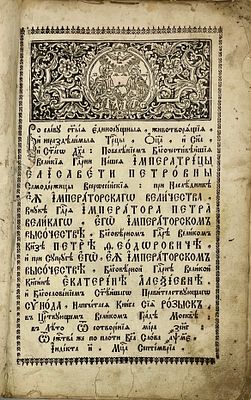 Во славу ст҃ыя единосущныя, животворящия,
и нераздѣлимыя Трⷪ҇цы, Оц҃а, и Сн҃а
и Ст҃агѡ Дх҃а: Повелѣнїемъ Благочестивѣйшїѧ
Великїѧ Гдⷭ҇рни Нашеѧ ИМПЕРАТРІЦЫ
ЕЛІСАВЕТИ ПЕТРОВНЫ
Самодержицы Всерѡссїйскїѧ: при Наслѣдникѣ
ЕѦ ІМПЕРАТОРСКАГѠ ВЕЛИЧЕСТВА,
Внукѣ Гдⷭ҇рѧ ІМПЕРАТОРА ПЕТРА
ВЕЛИКАГѠ, ЕГѠ ІМПЕРАТОРСКОМЪ
ВЫСОЧЕСТВѢ, Благовѣрномъ Гдⷭ҇рѣ Великомъ
Кнѧзѣ ПЕТРѢ ѲЕОДѠРОВИЧѢ,
и при Супрꙋгѣ ЕГѠ ЕѦ ІМПЕРАТОРСКОМЪ
ВЫСОЧЕСТВѢ, Благовѣрной Гдⷭ҇рнѣ Великой
Кнѧгинѣ ЕКАТЕРІНѢ АЛЕѮІЕВНѢ,
И Благословенїемъ Ст҃ѣйшагѡ Правительствꙋющагѡ
СѴНОДА, Напечатасѧ Книга Сїѧ РОЗЫСКЪ,
въ Црⷭ҇твꙋющемъ Великомъ Градѣ Москвѣ:
въ Лѣто Ѿ сотворенїѧ мїра
Ѿ Ржⷭ҇тва же по плоти Бг҃а Слова
Індікта, Мц҃а Септемврїа